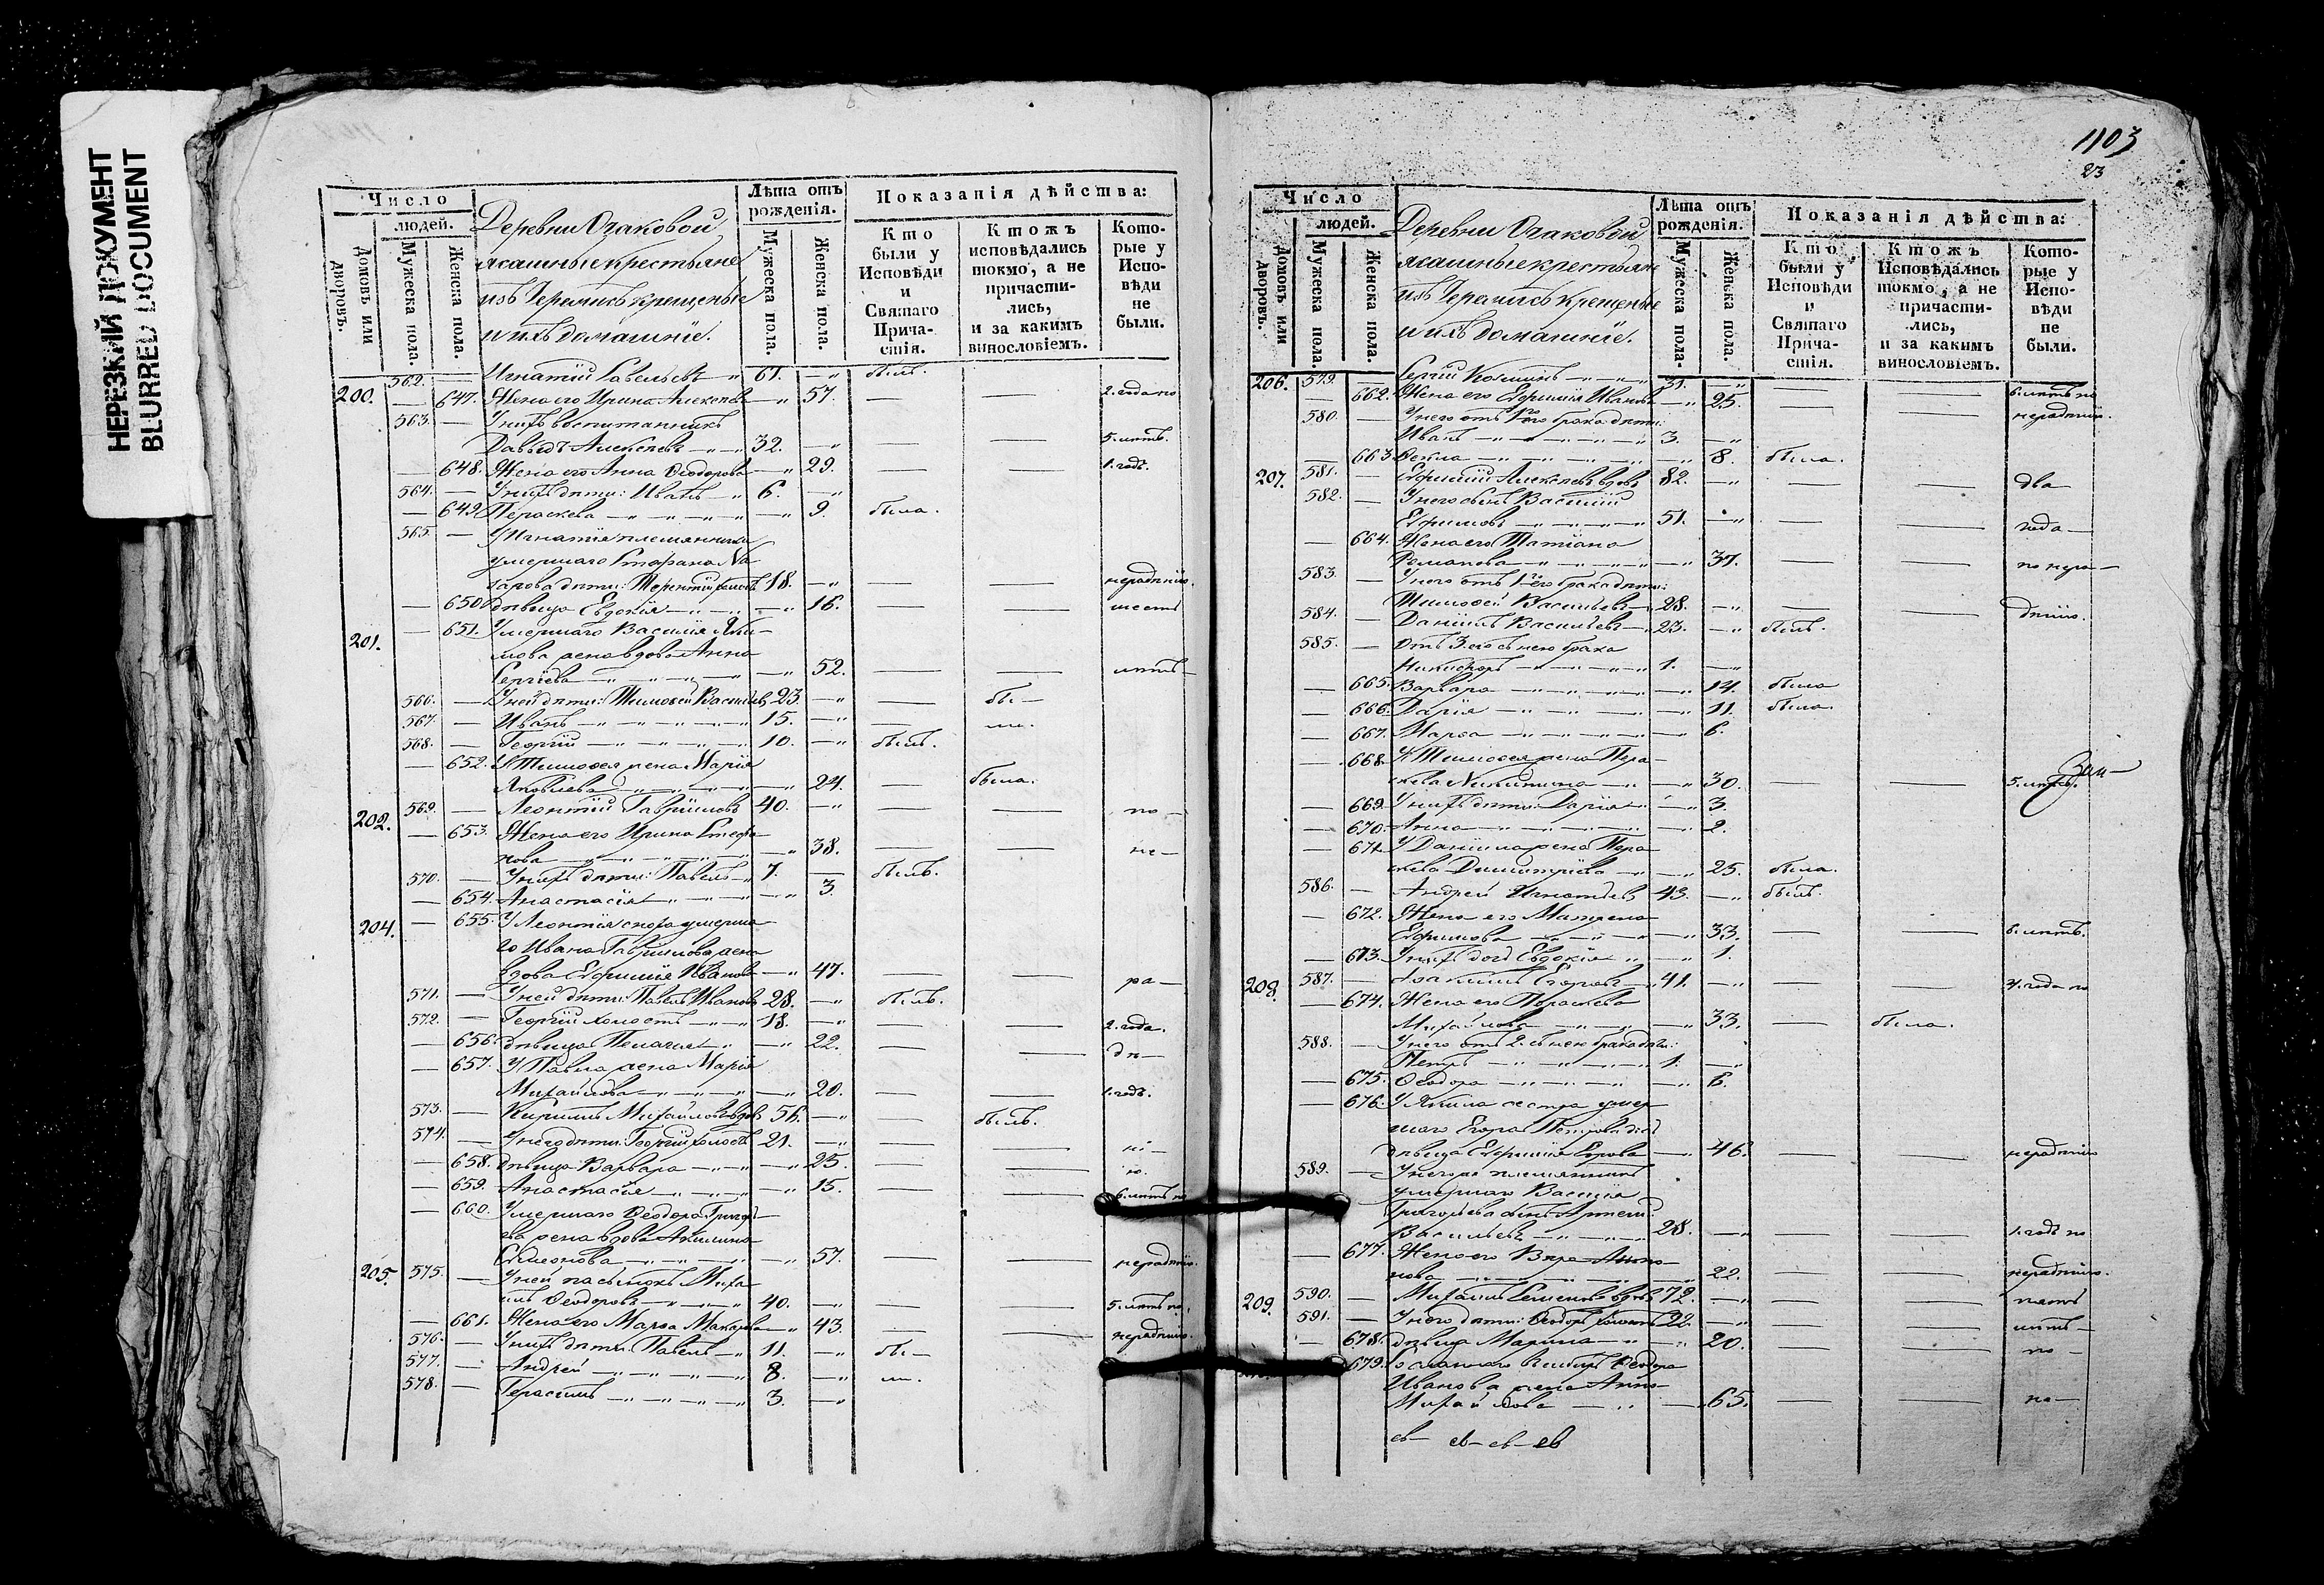 НЕРЕЗКИЙ ДОКУМЕНТ
BLURRED DOCUMENT
Число
людей.
Домовъ или дворовъ.
Мужеска пола.
Женска пола.
Деревни Очаковой
ясашные крестьяне
изъ крещеные
и ихъ домашніе.
Лѣта отъ рожденія.
Мужеска пола.
Женска пола.
Показанія дѣйства:
Кто были у Исповѣди и Святаго Причастія.
Ктожъ исповѣдались токмо, а не причастились, и за какимъ винословіемъ.
Которые у Исповѣди не были.
200. 562. — Игнатій Савельевъ 61. — былъ.
— 647. Жена его Ирина Алексѣева — 57. — — 2. года по
563. — У нихъ воспитанникъ
Давыдъ Алексѣевъ 32. — — — 5. лѣтъ.
— 648. Жена его Анна Ѳеодорова — 29. — — 1. годъ.
564. — У нихъ дѣти: Иванъ 6. —
— 649. Параскева — 9. была.
565. — У Игнатія племянника
умершаго Стефана
дѣти: Терентій 18. — — — нерадѣнію.
— 650. дѣвица Евдокія — 16. — — шесть
201. — 651. Умершаго Василія
жена вдова Анна
Сергѣева — 52. — — лѣтъ
566. — У ней дѣти: Тимоѳей Васильевъ 23. — — бы—
567. — Иванъ 15. — — ли.
568. — Георгій 10. — былъ.
— 652. У Тимоѳея жена Марія
Яковлева — 24. — была.
202. 569. — Леонтій Гавріиловъ 40. — — — по—
— 653. Жена его Ирина Стефа-
нова — 38. — — не—
570. — У нихъ дѣти: Павелъ 7. — былъ.
— 654. Анастасія — 3.
204. — 655. У Леонтія сноха умерша-
го Ивана Гавриилова жена
вдова Евфимія Иванова — 47. — — ра—
571. — У ней дѣти: Павелъ Ивановъ 28. — былъ.
572. — Георгій холостъ 18. — — — 2. года.
— 656. дѣвица Пелагія — 22. — — дѣ—
— 657. У Павла жена Марія
Михайлова — 20. — — 1. годъ.
573. — Кириллъ Михайловъ вдовъ 56. — — былъ.
574. — У него дѣти: Георгій холостъ 21. — — — ні—
— 658. дѣвица Варвара — 25. — — ю.
— 659. Анастасія — 15. — — 6. лѣтъ по
— 660. Умершаго Ѳеодора Григорь-
ева жена вдова Акилина
Симеонова — 57. — — нерадѣнію.
205. 575. — У ней пасынокъ Миха-
илъ Ѳеодоровъ 40. — — — 5. лѣтъ по
— 661. Жена его Марѳа Макарова — 43. — — нерадѣнію.
576. — У нихъ дѣти: Павелъ 11. — бы—
577. — Андрей 8. — ли.
578. — Герасимъ 3. —
1103
23
Число
людей.
Домовъ или дворовъ.
Мужеска пола.
Женска пола.
Деревни Очаковой
ясашные крестьяне
изъ крещеные
и ихъ домашніе.
Лѣта отъ рожденія.
Мужеска пола.
Женска пола.
Показанія дѣйства:
Кто были у Исповѣди и Святаго Причастія.
Ктожъ Исповѣдались токмо, а не причастились, и за какимъ винословіемъ.
Которые у Исповѣди не были.
206. 579. Сергій 31. —
— 662. Жена его Евфимія Иванова — 25. — — 6. лѣтъ по
580. У него отъ 1го брака дѣти: нерадѣнію.
Иванъ 3. —
— 663. Ѳекла — 8. была.
207. 581. — Евфимій Алексѣевъ вдовъ 82. — — — два—
582. — У него сынъ Василій
Ефимовъ 51. — — — года—
— 664. Жена его Татіана
Романова — 37. — — по нера—
583. — У него отъ 1го брака дѣти:
Тимоѳей Васильевъ 28. — — — дѣнію.
584. — Даніилъ Васильевъ 23. — былъ.
585. — Отъ 3. его съ нею брака
Никифоръ 1. —
— 665. Варвара — 14. была
— 666. Дарія — 11. была.
— 667. Марѳа — 6.
— 668. У Тимоѳея жена Пара-
скева Никитина — 30. — — 5. лѣтъ.
— 669. У нихъ дѣти: Дарія — 3.
— 670. Анна — 2.
— 671. У Даніила жена Пара-
скева Димитріева — 25. была.
586. — Андрей Игнатьевъ 43. — былъ.
— 672. Жена его Матрена
Ефимова — 33. — — 6. лѣтъ.
— 673. У нихъ дочь Евдокія — 1.
208. 587. — Іоакимъ Егоровъ 41. — — — 4. года по
— 674. Жена его Параскева
Михайлова — 33. — была.
588. — У него отъ 2. съ нею брака дѣти:
Петръ 1. —
— 675. Ѳеодора — 6.
— 676. У Якима сестра умер-
шаго Егора Петрова дочь
дѣвица Евфимія Егорова — 46. — — нерадѣнію
589. — У него же племянникъ
умершаго Василія
Григорьева сынъ Артемій
Васильевъ 28. — — — 1. годъ по
— 677. Жена его Вѣра Анто-
нова — 22. — — нерадѣнію.
209. 590. — Михаилъ Семеновъ вдовъ 72. — — — пять
591. — У него дѣти: Ѳеодоръ холостъ 22. — — — лѣтъ—
— 678. дѣвица Марина — 20. — — по—
679. Сосланнаго въ Сибирь Ѳеодора
Иванова жена Анна
Михайлова — 65. — — не—